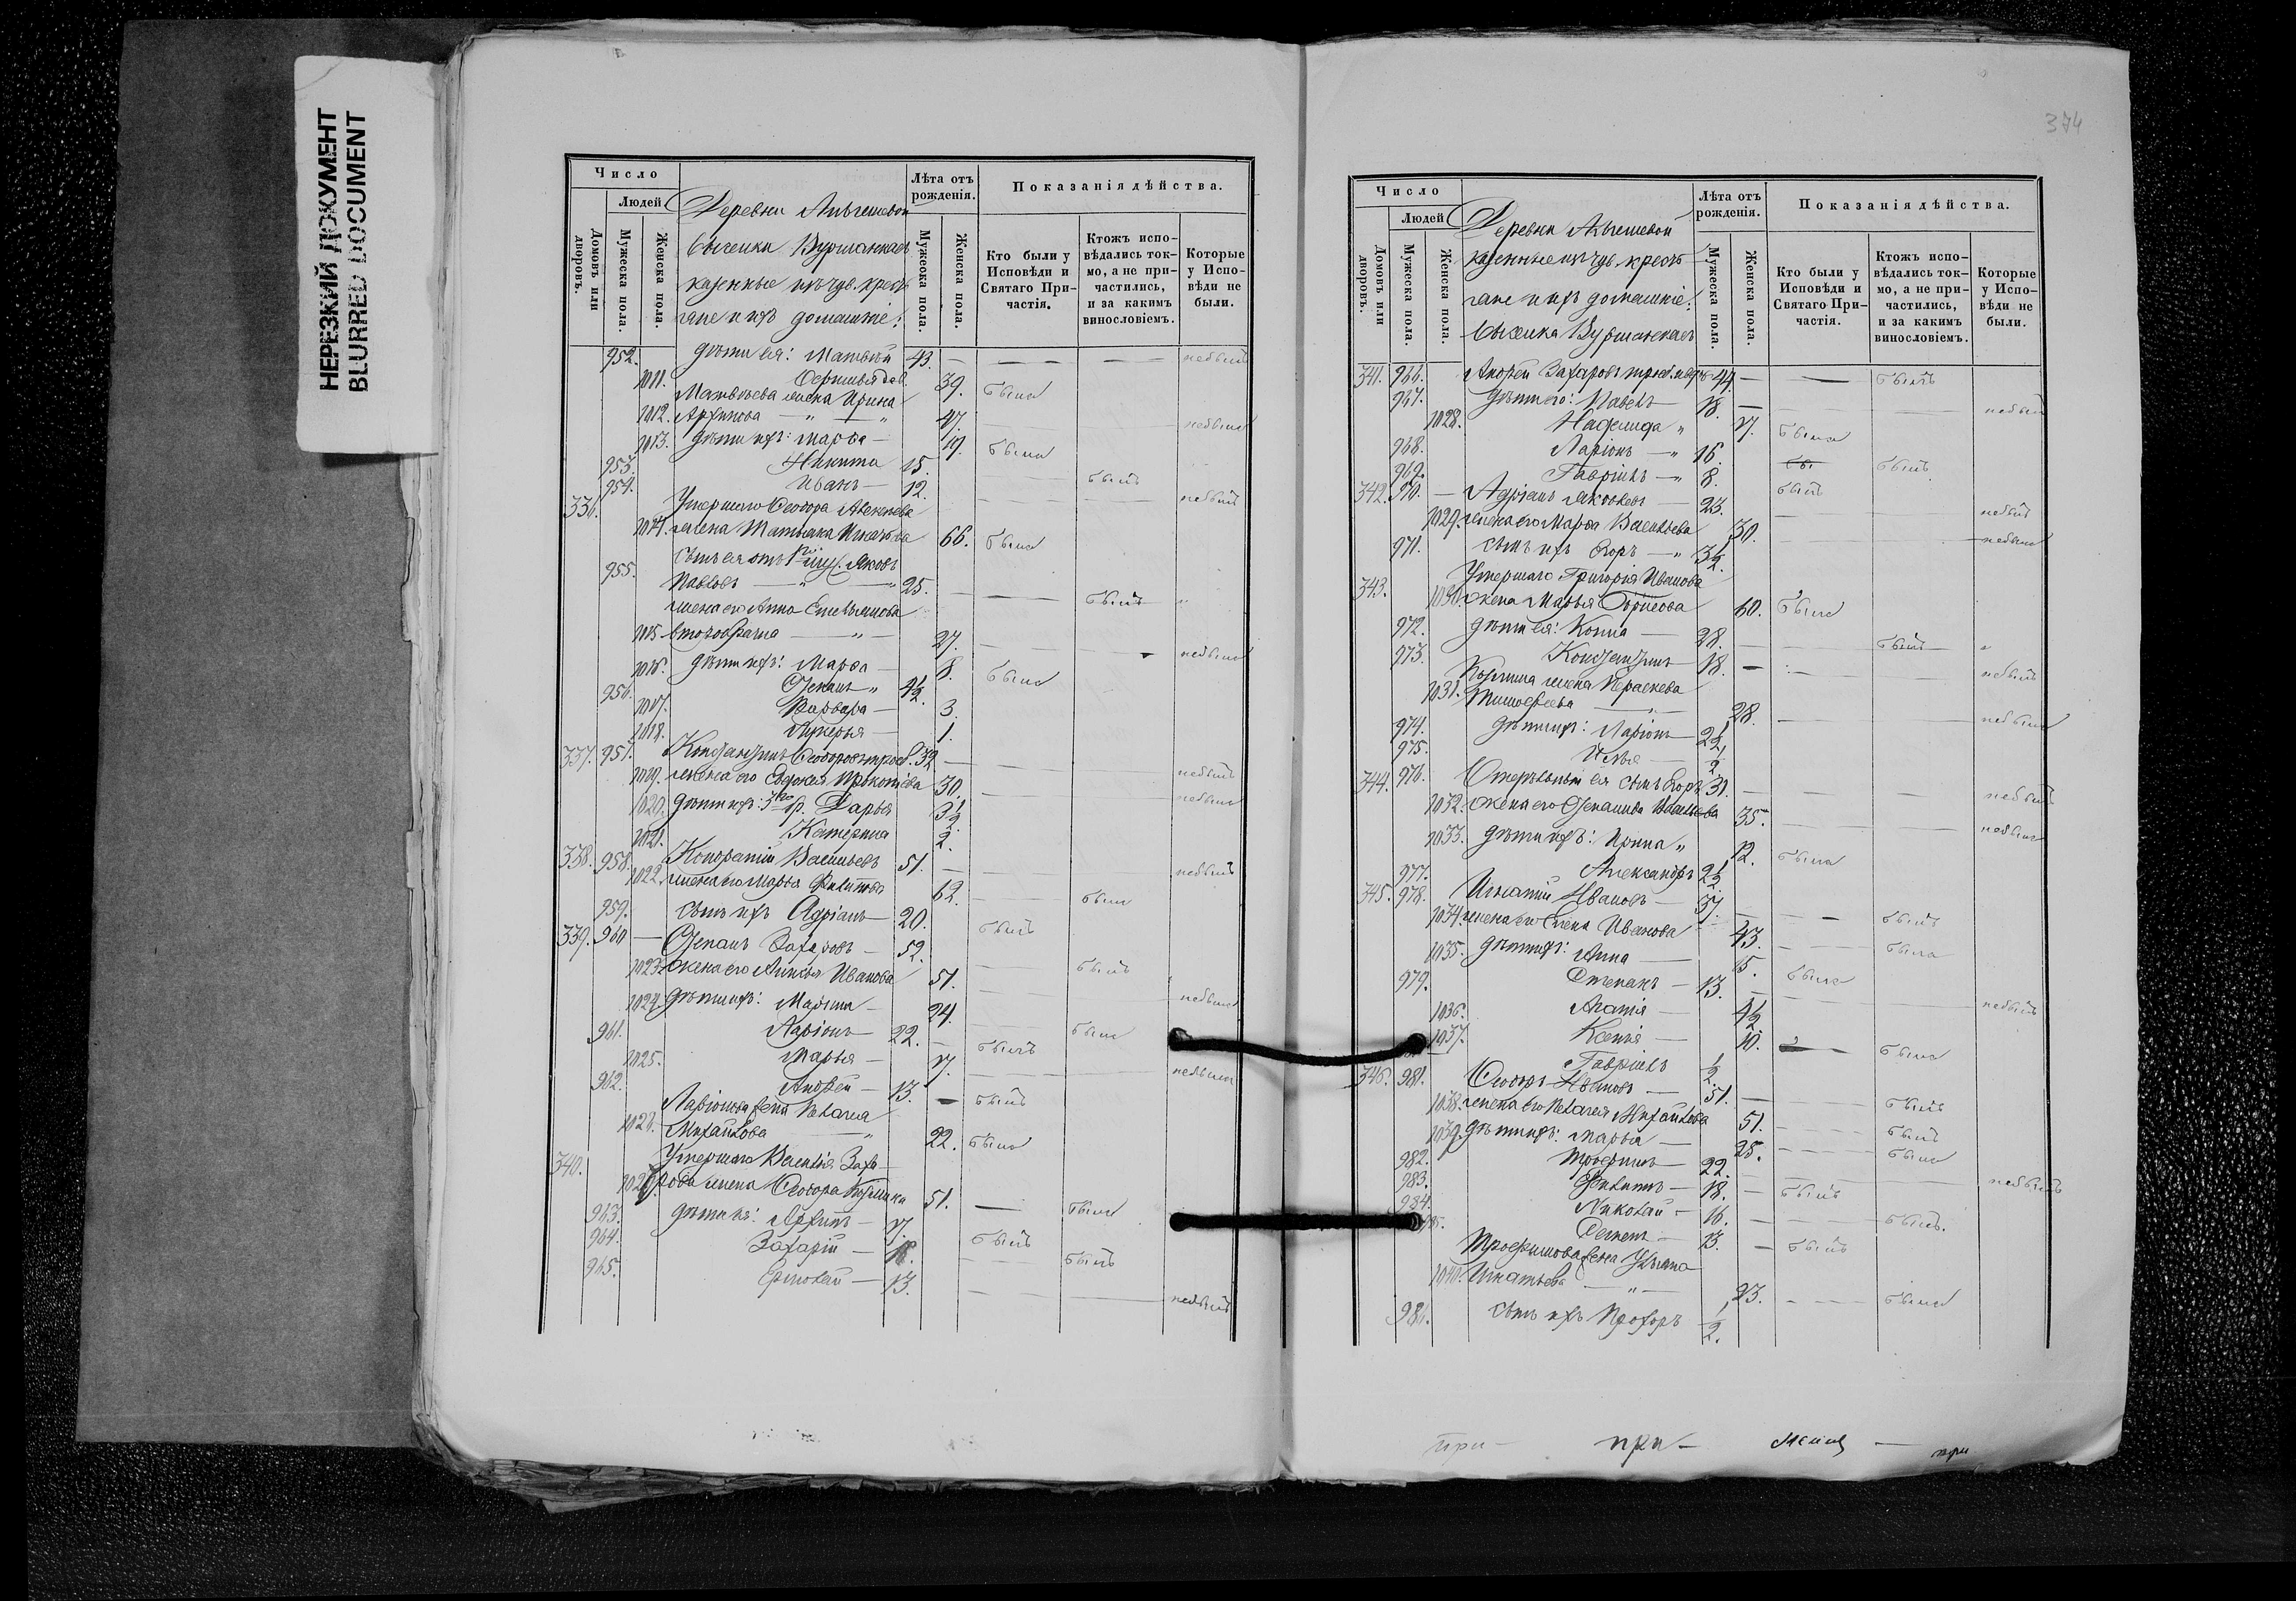 НЕРЕЗКИЙ ДОКУМЕНТ
BLURRED DOCUMENT
Число
Людей
Домовъ или дворовъ.
Мужеска пола.
Женска пола.
Деревни
казенные крестъ
яне и ихъ домашніе:
Лѣта отъ рожденія.
Мужеска пола.
Женска пола.
Показанія дѣйства.
Кто были у Исповѣди и Святаго Причастія.
Ктожъ исповѣдались токмо, а не причастились, и за какимъ винословіемъ.
Которые у Исповѣди не были.
952. дѣти ея: Матвѣй 43. — — — небылъ
1011. 39. была
Матвѣева жена Ирина
1012. Архипова — " — " 47. небыла
1013. дѣти ихъ: Марѳа — 19. была
953. Никита 15. былъ
954. Иванъ — 12. небылъ
336. Умершаго Ѳеодора Алексѣева
1014. жена Татьяна Игнатьева 66. была
955. сынъ ея отъ Яковъ
Павловъ — " — " 25. — — былъ
жена его Анна Емельянова
1015. второбрачна — " — 27. небыла
1016. дѣти ихъ: Марѳа — 8. была
956. Степанъ " 4½
1017. Варвара — 3.
1018. Гликерья — 1.
337. 957. Константинъ Ѳеодоровъ 32 — — небылъ
1019. жена его Евдокія Прокопіева 30. небыла
1020. дѣти ихъ: Дарья 3½
1021. Катерина 2.
338. 958. Кондратій Васильевъ 51. — небылъ
1022. жена его Марья Филипова 62. — была
959. сынъ ихъ Адріанъ — 20. былъ
339. 960 — Степанъ Захаровъ — 52. — былъ
1023. жена его Иванова 51. небыла
1024. дѣти ихъ: Марина — 24. была
961. Ларіонъ — 22. — былъ
1025. Марья — 17. небыла
962. Андрей — 13. — былъ
Ларіонова жена Пелагія
1026. Михайлова — " 22. была
340. Умершаго Василія Заха-
1027. рова жена Ѳеодора Кузмина 51. — была
963. дѣти ея: Архипъ — 17. былъ
964. Захарій — былъ
965. Ермолай — 13. небылъ
374
Число
Людей
Домовъ или дворовъ.
Мужеска пола.
Женска пола.
Деревни
казенные крестъ
яне и ихъ домашніе:
Лѣта отъ рожденія.
Мужеска пола.
Женска пола.
Показанія дѣйства.
Кто были у Исповѣди и Святаго Причастія.
Ктожъ исповѣдались токмо, а не причастились, и за какимъ винословіемъ.
Которые у Исповѣди не были.
341. 966. Андрей Захаровъ 44 — — былъ
967. дѣти его: Павелъ — 18. — небылъ
1028. Надежда " 17. была
968. Ларіонъ — " 16. былъ
969. Гавріилъ — " 8. былъ
342. 970. — Адріанъ Яковлевъ — 23. небылъ
1029. жена его Марѳа Васильева 30. небыла
971. сынъ ихъ Егоръ — " 3½
343. Умершаго Григорія Иванова
1030. жена Марья Борисова 60. была
972. дѣти ея: Козма — 28. былъ
973. Константинъ — 18. — небылъ
Козмина жена Параскева
1031. Тимоѳеева — 28. небыла
974. дѣти ихъ: Ларіонъ — 2½
975. Илья — ½
344. 976. Отдѣльный ея сынъ Егоръ 31. — небылъ
1032. жена его Степанида Васильева 35. небыла
1033. дѣти ихъ: Ирина " 12. была
977. Александръ 2½
345. 978. Игнатій Ивановъ — 37. — былъ
1034. жена его Елена Иванова 43. была
1035. дѣти ихъ: Анна — 15. была
979. Степанъ — 13. — небылъ
1036. Агапія — 4½
1037. Ксенія — 10. была
Гавріилъ ½
346. 981. Ѳеодоръ Ивановъ — 51. — былъ
1038. жена его Пелагея Михайлова 51. былъ
1039. дѣти ихъ: Марья — 25. была
982. Трофимъ — 22. небылъ
983. Филипъ — 18. — былъ
984. Николай — 16. былъ.
985. Семенъ — 13. — былъ
Трофимова жена Ульяна
1040. Игнатьева — " — 23. была
986. сынъ ихъ Прохоръ ½.
при — при — —  при